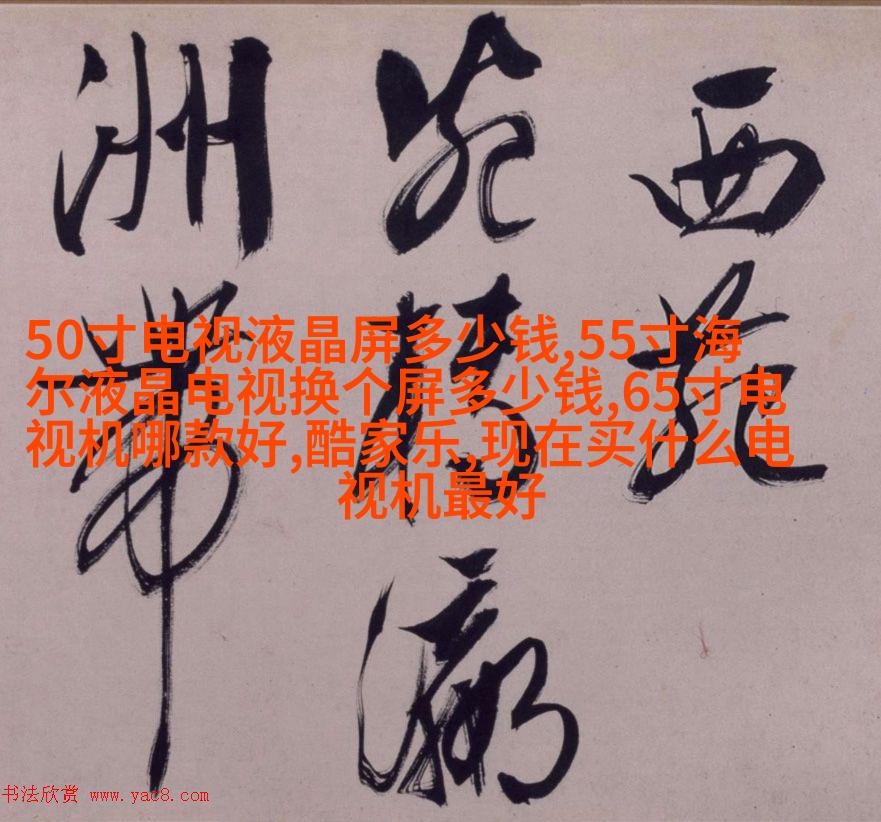 西苑
瀛
洲帶
50寸电视液晶屏多少钱,55寸海
尔液晶电视换个屏多少钱,65寸电
视机哪款好,酷家乐,现在买什么电
视机最好
书法欣赏 www.yac8.com